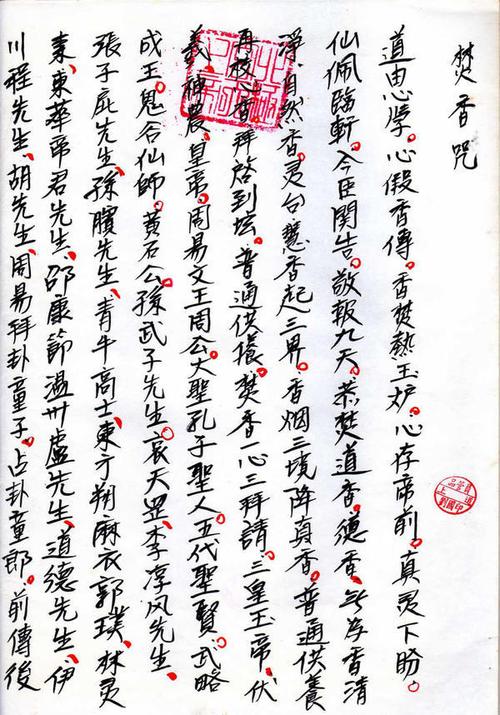 焚香咒
道由心学。心假香傳。香焚熱玉炉。心存帝前。真灵下盼。
仙佩臨軒。今臣関告。敬報九天。恭焚道香。德香、无为香清
淨、自然香、灵台慧香起三界。香烟三境降真香。普通供養
再校心香、拜啓到坛。普通供。焚香一心三拜請。三皇玉帝。伏
羲神農皇帝。周易文王周公大聖孔子聖人。五代聖賢。武略
成王。鬼谷仙師。黄石公孫武子先生。袁天罡。李淳风先生、
張子房先生、孫臏先生、青牛高士、東方朔麻衣郭璞、林灵
素、東華帝君先生、邵康節温州盧先生、道德先生、伊
川程先生、胡先生、周易拜卦童子、占卦童郎、前傳後